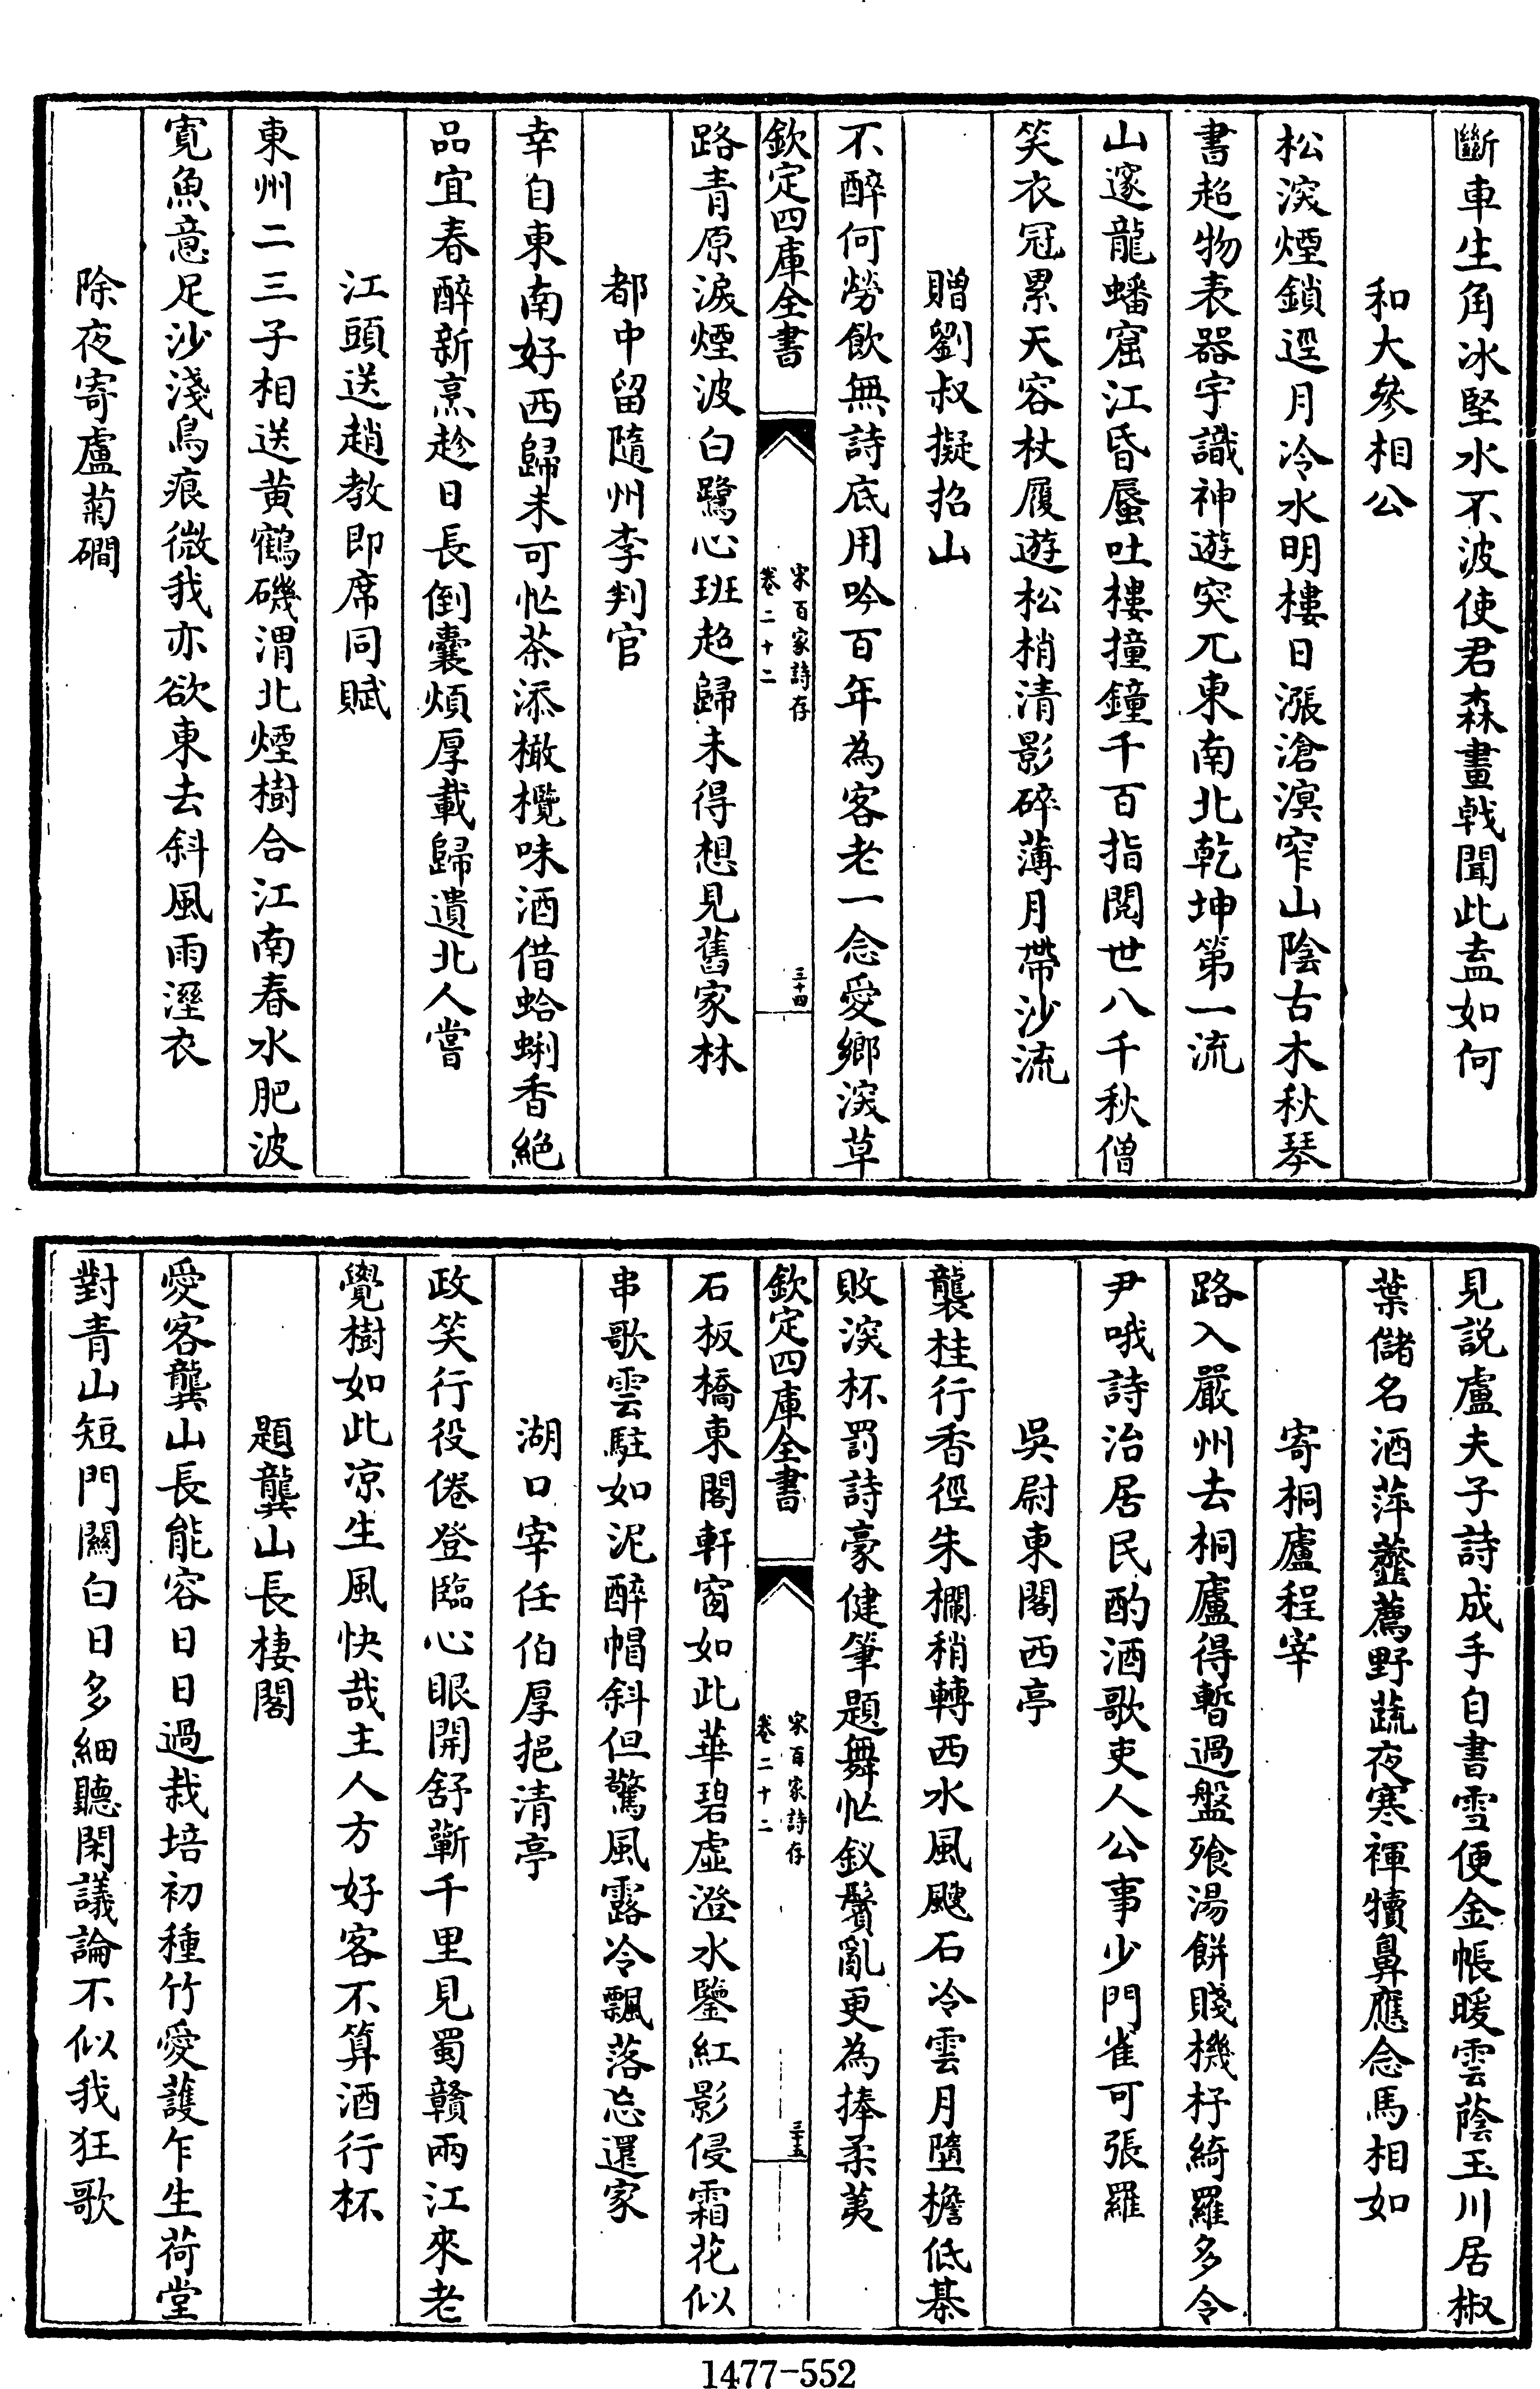 斷車生角冰堅水不波使君森畫戟聞此盍如何
和大參相公
松深煙鎖逕月冷水明樓日漲滄溟窄山陰古木秋琴
書超物表器宇識神遊突兀東南北乾坤第一流
山邃龍蟠窟江昏蜃吐樓撞鐘千百指閱世八千秋僧
笑衣冠累天容杖履遊松梢清影碎薄月帶沙流
贈劉叔擬招山
不醉何勞飲無詩底用吟百年為客老一念愛鄉深草
欽定四庫全書
宋百家詩存
卷二十二
三十四
路青原淚煙波白鷺心班超歸未得想見舊家林
都中留隨州李判官
幸自東南好西歸未可忙茶添橄欖味酒借蛤蜊香絕
品宜春醉新烹趁日長倒囊煩厚載歸遺北人嘗
江頭送趙教即席同賦
東州二三子相送黃鶴磯渭北煙樹合江南春水肥波
寬魚意足沙淺鳥痕微我亦欲東去斜風雨溼衣
除夜寄盧菊磵
見說盧夫子詩成手自書雪便金帳暖雲蔭玉川居椒
葉儲名酒萍虀薦野蔬夜寒褌犢鼻應念馬相如
寄桐廬程宰
路入嚴州去桐廬得暫過盤飱湯餅賤機杼綺羅多令
尹哦詩治居民酌酒歌吏人公事少門雀可張羅
吳尉東閣西亭
襲桂行香徑朱欄稍轉西水風颼石冷雲月墮檐低棊
敗深杯罰詩豪健筆題舞忙釵鬢亂更為捧柔荑
欽定四庫全書
宋百家詩存
卷二十二
三十五
石板橋東閣軒窗如此華碧虛澄水鑒紅影侵霜花似
串歌雲駐如泥醉帽斜但驚風露冷飄落忘還家
湖口宰任伯厚挹清亭
政笑行役倦登臨心眼開舒蘄千里見蜀贛兩江來老
覺樹如此凉生風快哉主人方好客不算酒行杯
題龔山長棲閣
愛客龔山長能容日日過栽培初種竹愛護乍生荷堂
對青山短門關白日多細聽閑議論不似我狂歌
1477-552